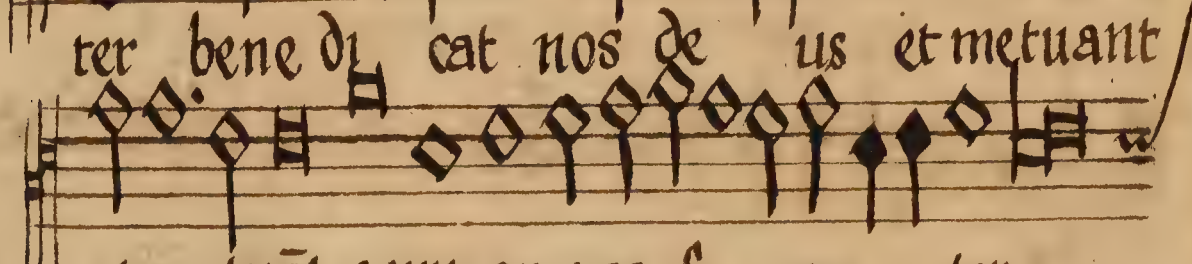 ter bene di cat nos de us et metuant